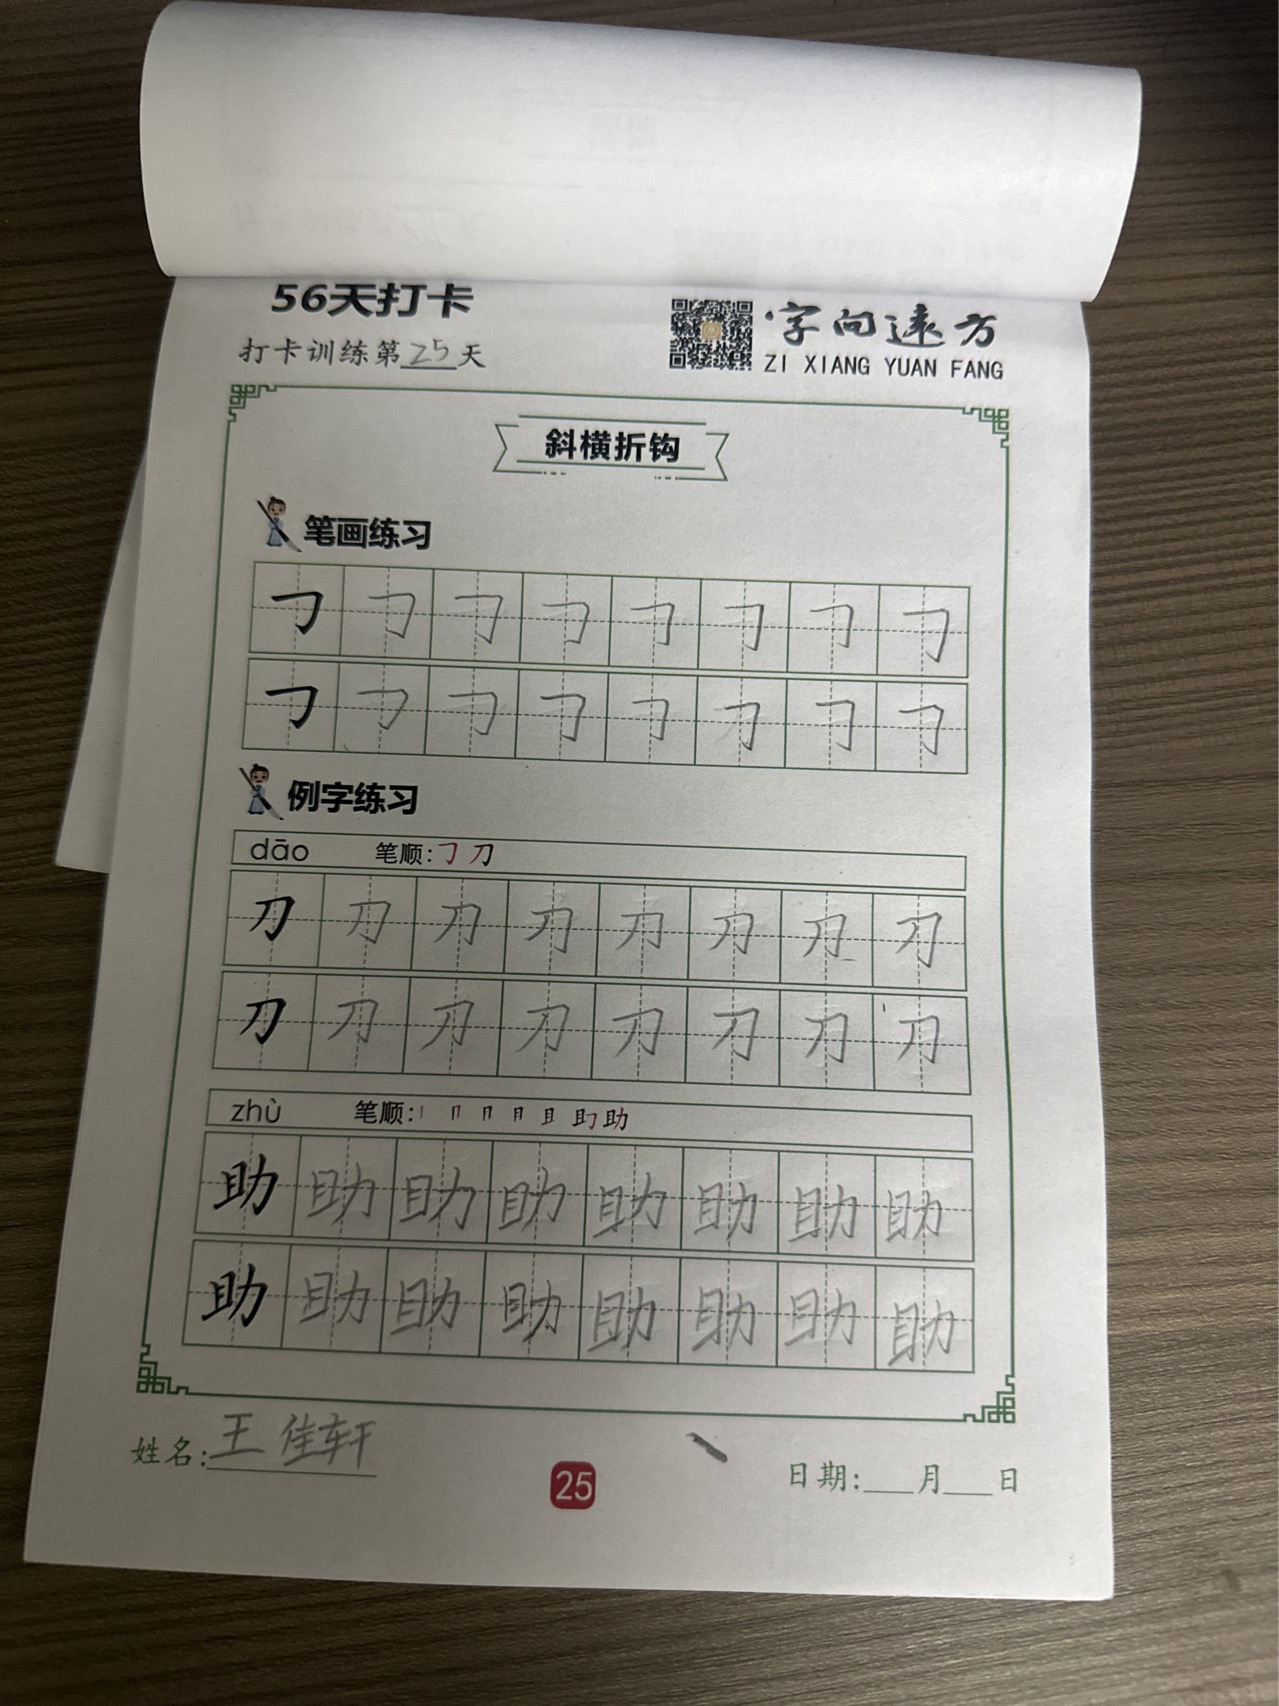 56天打卡
字向远方
打卡训练第25天
ZI XIANG YUAN FANG
斜横折钩
笔画练习
㇆㇆㇆㇆㇆㇆㇆㇆
㇆㇆㇆㇆㇆㇆㇆㇆
例字练习
dāo 笔顺:㇆刀
刀刀刀刀刀刀刀刀
刀刀刀刀刀刀刀刀
zhù 笔顺:丨 冂 冂 月 且 助 助
助助助助助助助助
助助助助助助助助
姓名:王佳轩
25
日期:___月___日